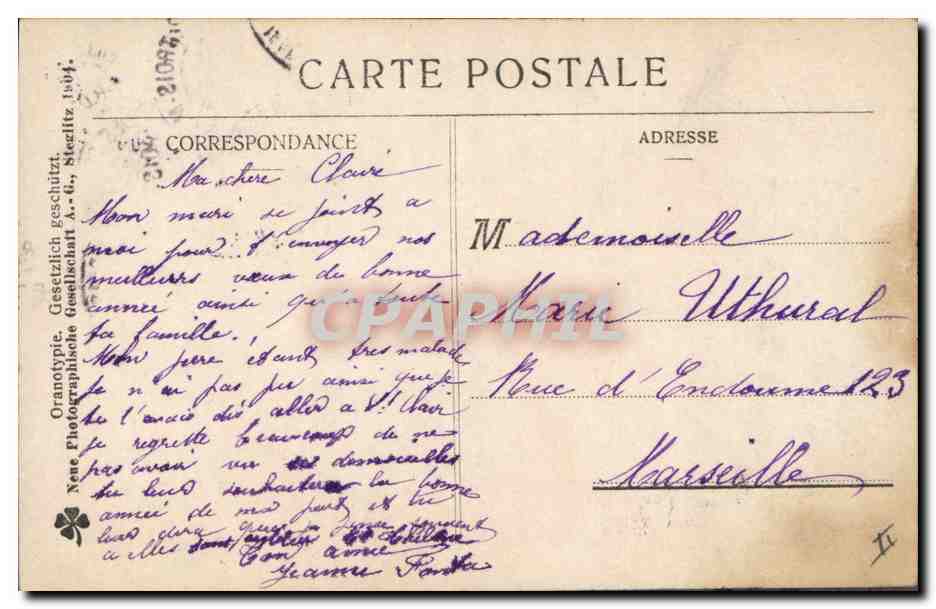 CARTE POSTALE
CORRESPONDANCE
ADRESSE
Ma chère Claire
Mon mari se joint a
moi pour t'envoyer nos
meilleurs vœux de bonne
année ainsi qu'a toute
ta famille.
Mon pere étant tres malade
je n'ai pas pu ainsi que je
te l'avais dis aller a St Clair
je regrette beaucoup de ne
pas avoir vu demoiselles
tu leur souhaitera la bonne
année de ma part et tu
leur dira que je pense souvent
a elles
Ton amie
Jeanne
Mademoiselle
Marie Uthural
Rue d'Endoume 123
Marseille
II
Oranotypie. Gesetzlich geschützt.
Neue Photographische Gesellschaft A.-G., Steglitz 1904.
CPAPHIL